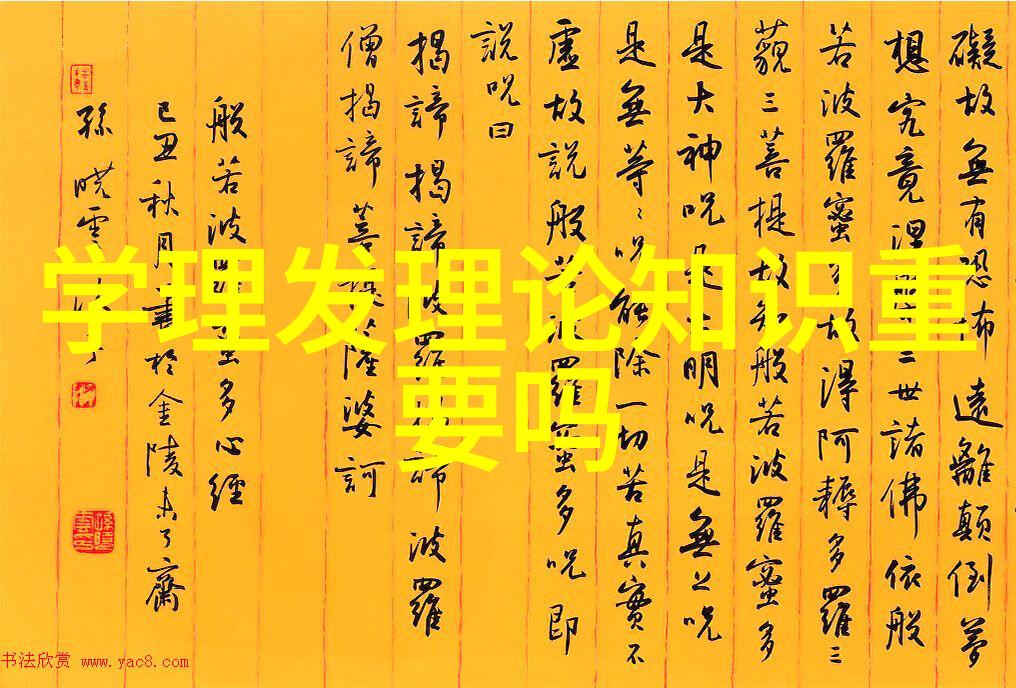 学理发理论知识重
要吗
礙故無有恐怖遠離顛倒夢
想究竟涅槃三世諸佛依般
若波羅蜜多故得阿耨多羅三
藐三菩提故知般若波羅蜜多
是大神呪是大明呪是無上呪
是無等〻呪能除一切苦真實不
虛故說般若波羅蜜多呪即
說呪曰
揭諦揭諦波羅揭諦波羅
僧揭諦菩提薩婆訶
般若波羅蜜多心經
己丑秋月書於金陵未了齋
孫曉雲
书法欣赏 www.yac8.com